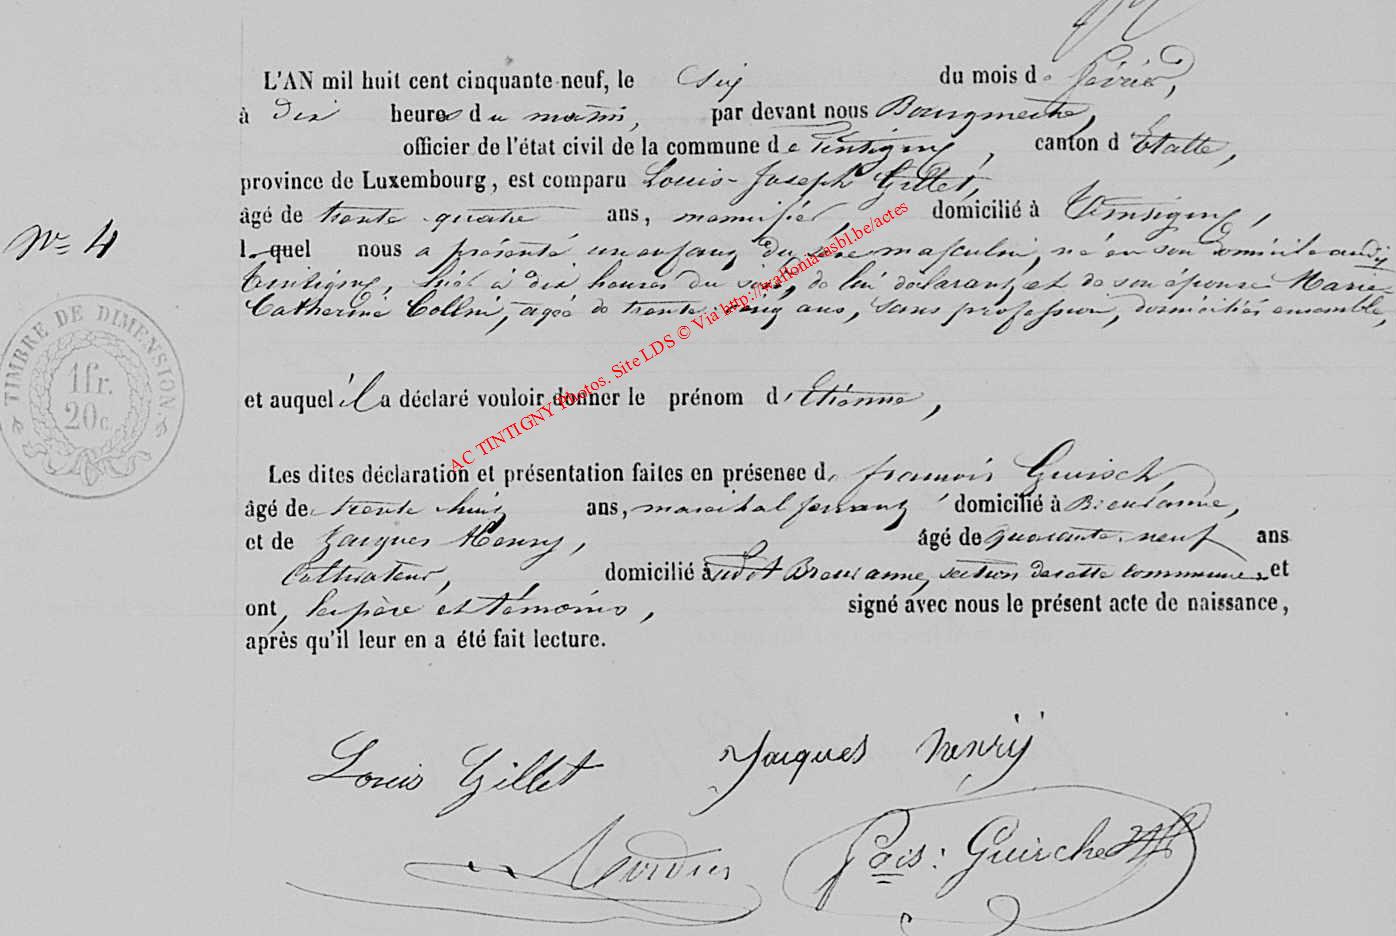 L'AN mil huit cent cinquante-neuf, le six du mois de février,
à dix heures du matin, par devant nous Bourgmestre,
officier de l'état civil de la commune de Tintigny, canton d'Etalle,
province de Luxembourg, est comparu Louis-Joseph Gillet,
âgé de trente-quatre ans, menuisier, domicilié à Tintigny,
N° 4
lequel nous a présenté un enfant du sexe masculin, né en son domicile audit
Tintigny, hier à dix heures du soir, de lui déclarant et de son épouse Marie-
Catherine Collin, agée de trente cinq ans, sans profession, domiciliés ensemble,
TIMBRE DE DIMENSION
1 fr.
20 c.
et auquel il a déclaré vouloir donner le prénom d'Etienne,
Les dites déclaration et présentation faites en présence de françois Guirsch,
âgé de trente huit ans, marechal ferrant, domicilié à Breuvanne,
et de Jacques Henry, âgé de quarante-neuf ans
Cultivateur, domicilié à udit Breuvanne, section de cette commune, et
ont, les père et témoins, signé avec nous le présent acte de naissance,
après qu'il leur en a été fait lecture.
Louis Gillet Jacques henrij
fcois: Guirche
AC TINTIGNY Photos. Site LDS © Via http://wallonia-asbl.be/actes